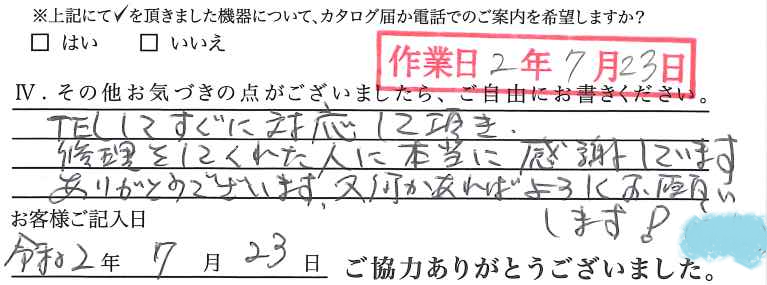 ※上記にて✓を頂きました機器について、カタログ届か電話でのご案内を希望しますか?
□ はい □ いいえ
作業日 2年7月23日
Ⅳ．その他お気づきの点がございましたら、ご自由にお書きください。
TELしてすぐに対応して頂き、
修理をしてくれた人に本当に感謝しています
ありがとうございます、又何かあればよろしくお願い
します!
お客様ご記入日
令和2年 7月 23日
ご協力ありがとうございました。